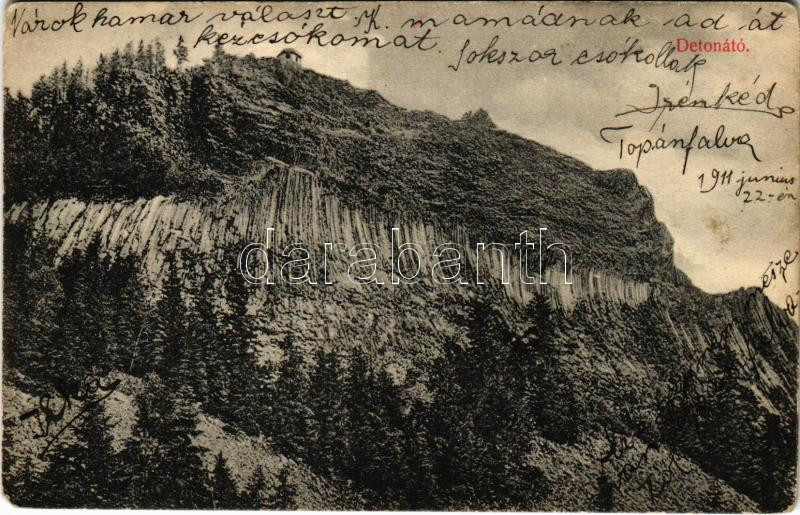 Várok hamar választ, K. mamádnak ad át
kézcsókomat. Sokszor csókollak
Detonátó.
Irénkéd
Topánfalva
1911 junius
22-én
darabanth